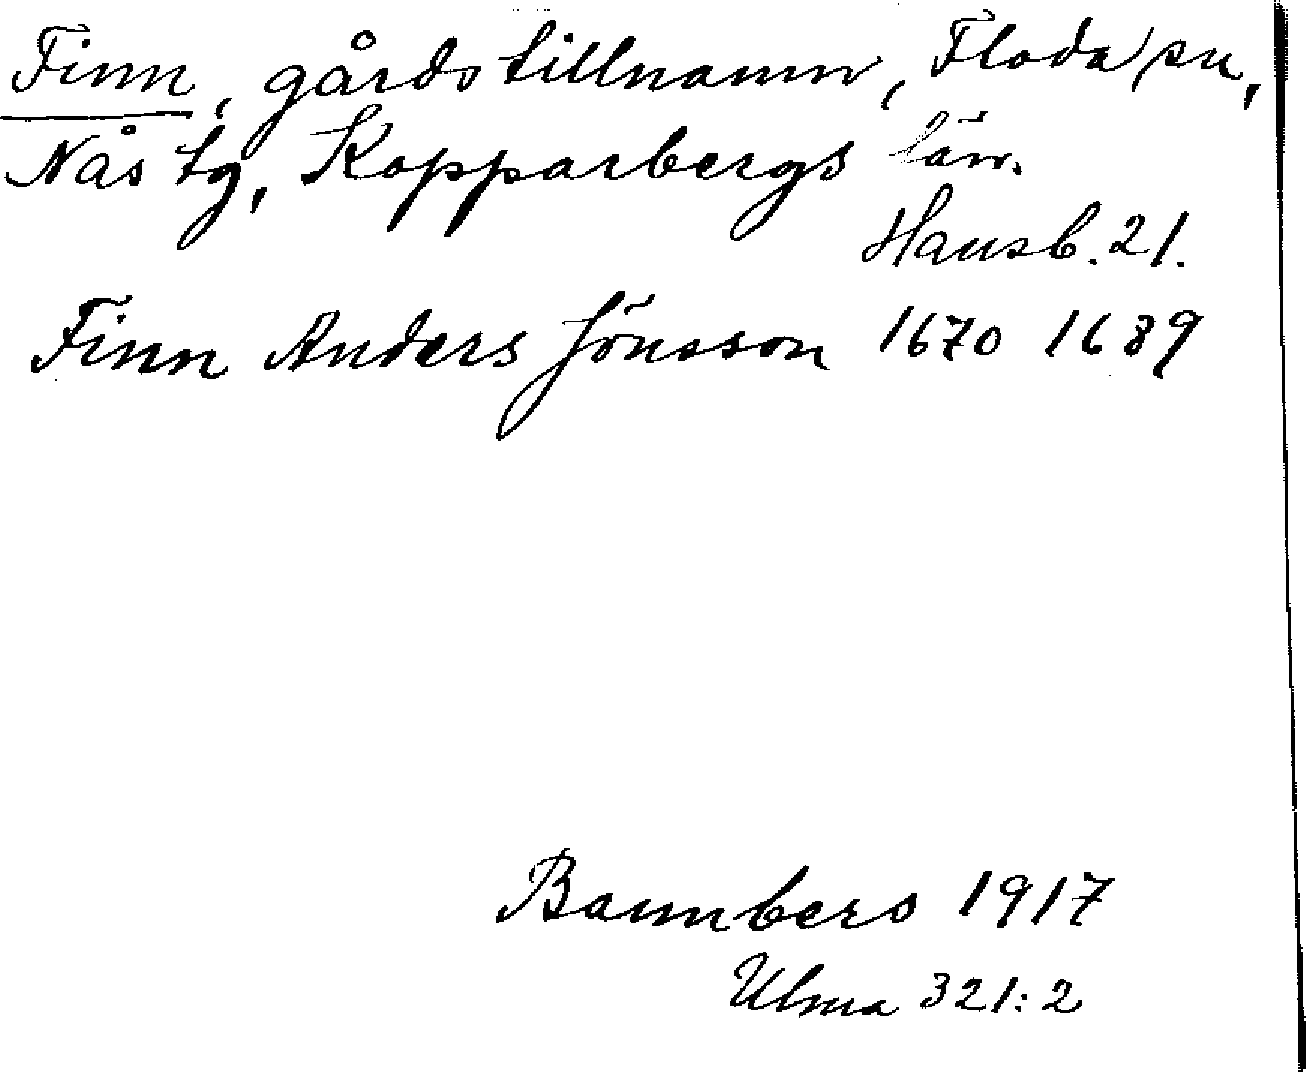 Finn, gårdstillnamn, Floda sn,
Nås tg, Kopparbergs län.
Hansb. 21.
Finn Anders Jönsson 1670 1689
1917
Ulma 321:2